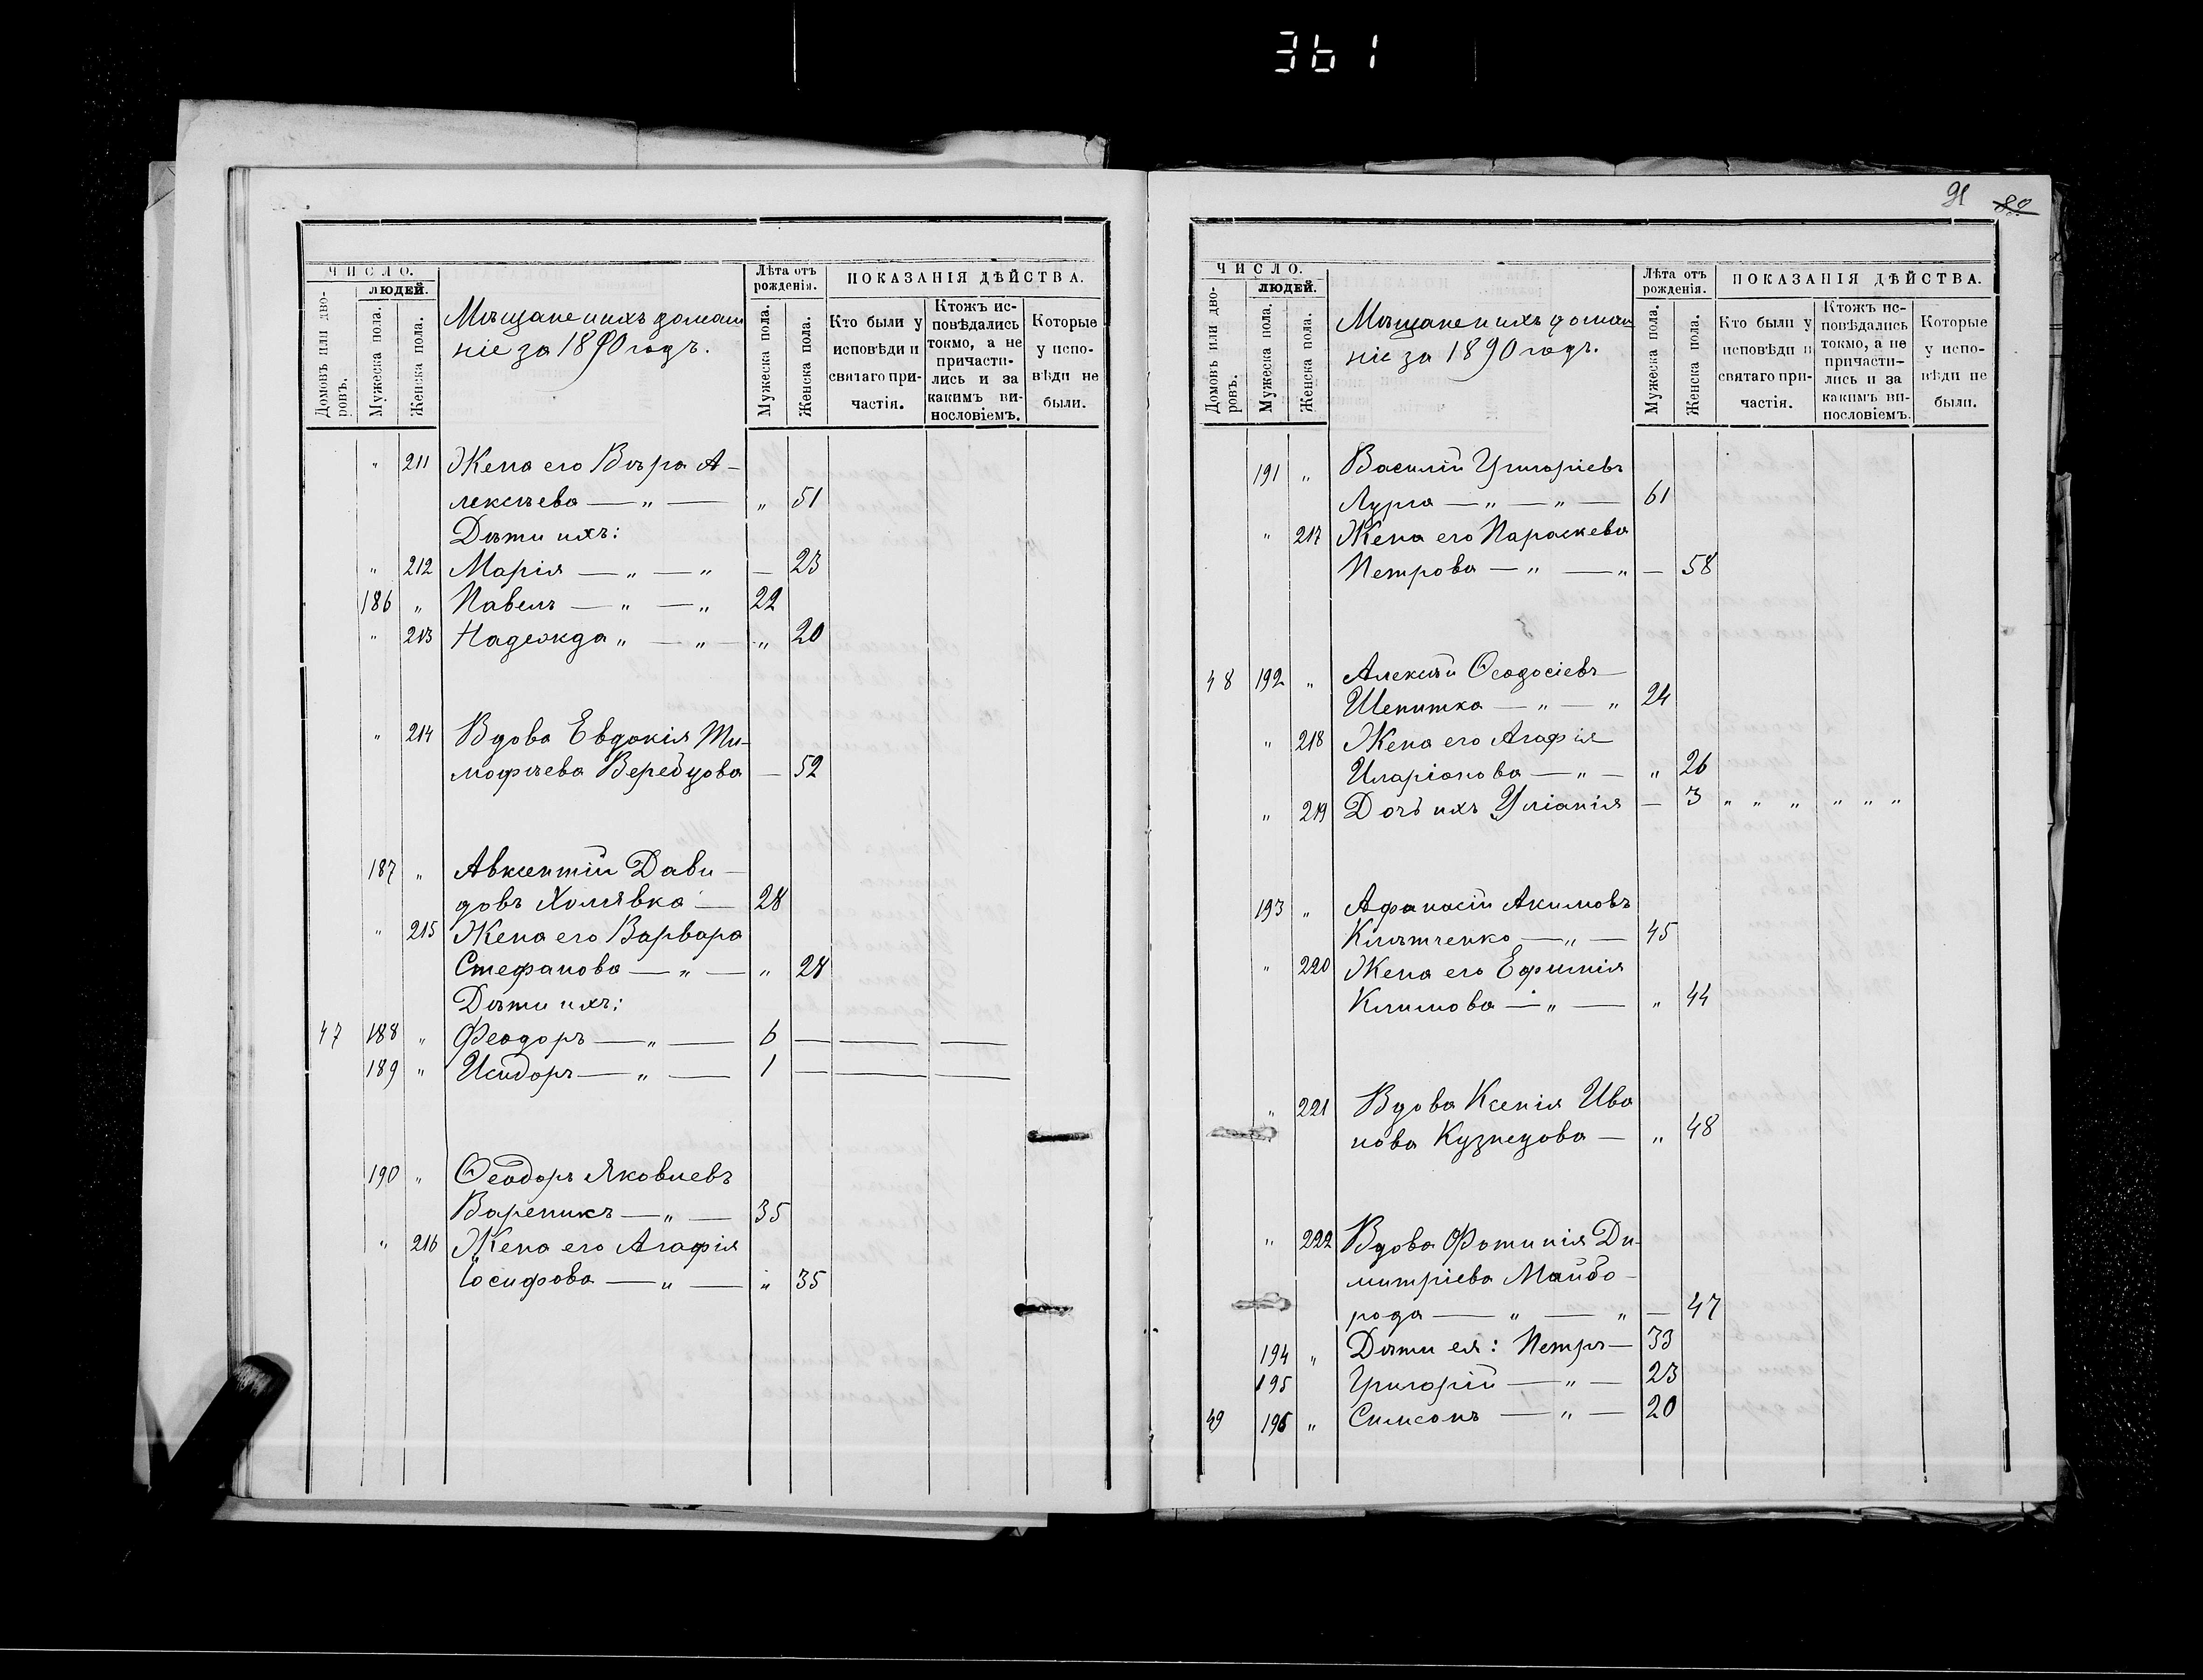 361
ЧИСЛО.
ЛЮДЕЙ.
Домовъ или дво-
ровъ.
Мужеска пола.
Женска пола.
Мѣщане и ихъ домаш
ніе за 1890 годъ.
Лѣта отъ
рожденія.
Мужеска пола.
Женска пола.
ПОКАЗАНІЯ ДѢЙСТВА.
Кто были у
исповѣди и
святаго при-
частія.
Ктожъ ис-
повѣдались
токмо, а не
причасти-
лись и за
какимъ ви-
нословіемъ.
Которые
у испо-
вѣди не
были.
" 211 Жена его Вѣра А-
лексѣева — " — " 51
Дѣти ихъ:
" 212 Марія — " — " — 23
186 " Павелъ — " — " 22
" 213 Надежда " — " — " 20
" 214 Вдова Евдокія Ти-
мофѣева Веребцова — 52
187 " Авксентій Дави-
довъ Холявка — 28
" 215 Жена его Варвара
Стефанова — " — " 28
Дѣти ихъ:
47 188 " Феодоръ — " — 6 — — —
189 " Исидоръ — " — 1 — — —
190 " Ѳеодоръ Яковлевъ
Вареникъ — " — 35
" 216 Жена его Агафія
Іосифова — " — " 35
91 82
ЧИСЛО.
ЛЮДЕЙ.
Домовъ или дво-
ровъ.
Мужеска пола.
Женска пола.
Мѣщане и ихъ домаш
ніе за 1890 годъ.
Лѣта отъ
рожденія.
Мужеска пола.
Женска пола.
ПОКАЗАНІЯ ДѢЙСТВА.
Кто были у
исповѣди и
святаго при-
частія.
Ктожъ ис-
повѣдались
токмо, а не
причасти-
лись и за
какимъ ви-
нословіемъ.
Которые
у испо-
вѣди не
были.
191 " Василій Григоріевъ
Лурга — " — " — 61
" 217 Жена его Параскева
Петрова — " — " — 58
48 192 " Алексѣй Ѳеодосіевъ
Шепитка — " — " 24
" 218 Жена его Агафія
Иларіонова — " — " 26
" 219 Дочь ихъ Уліанія — 3 " " " " " "
193 " Афанасій Акимовъ
Клѣтченко — " — 45
" 220 Жена его Ефимія
Климова — " — " 44
" 221 Вдова Ксенія Ива
нова Кузнецова — " 48
" 222 Вдова Фотинія Ди-
митріева Майбо-
рода — " — " — 47
194 " Дѣти ея: Петръ — 33
195 Григорій — " — 23
49 196 " Симеонъ — " — 20